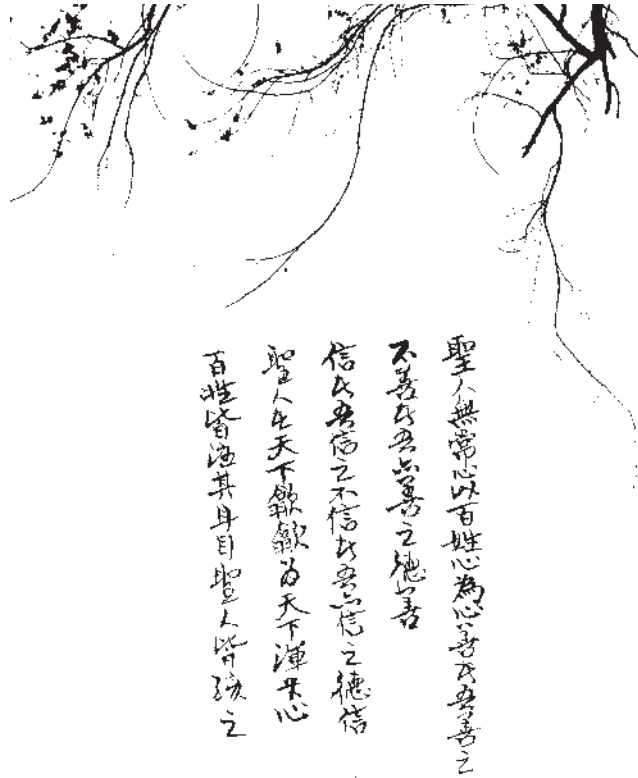 聖人無常心以百姓心為心善者吾善之
不善者吾亦善之德善
信者吾信之不信者吾亦信之德信
聖人在天下歙歙為天下渾其心
百姓皆注其耳目聖人皆孩之